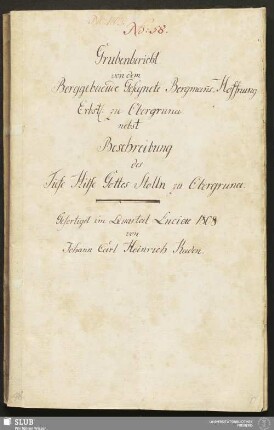 No: 58.
Grubenbericht
von dem
Berggebäude Gesegnete Bergmañs Hoffnung
Erbst. zu Obergruna
nebst
Beschreibung
des
Hülfe Gottes Stolln zu Obergruna
Gefertiget im Quartal Luciae 1808
von
Johann Carl Heinrich
SLUB